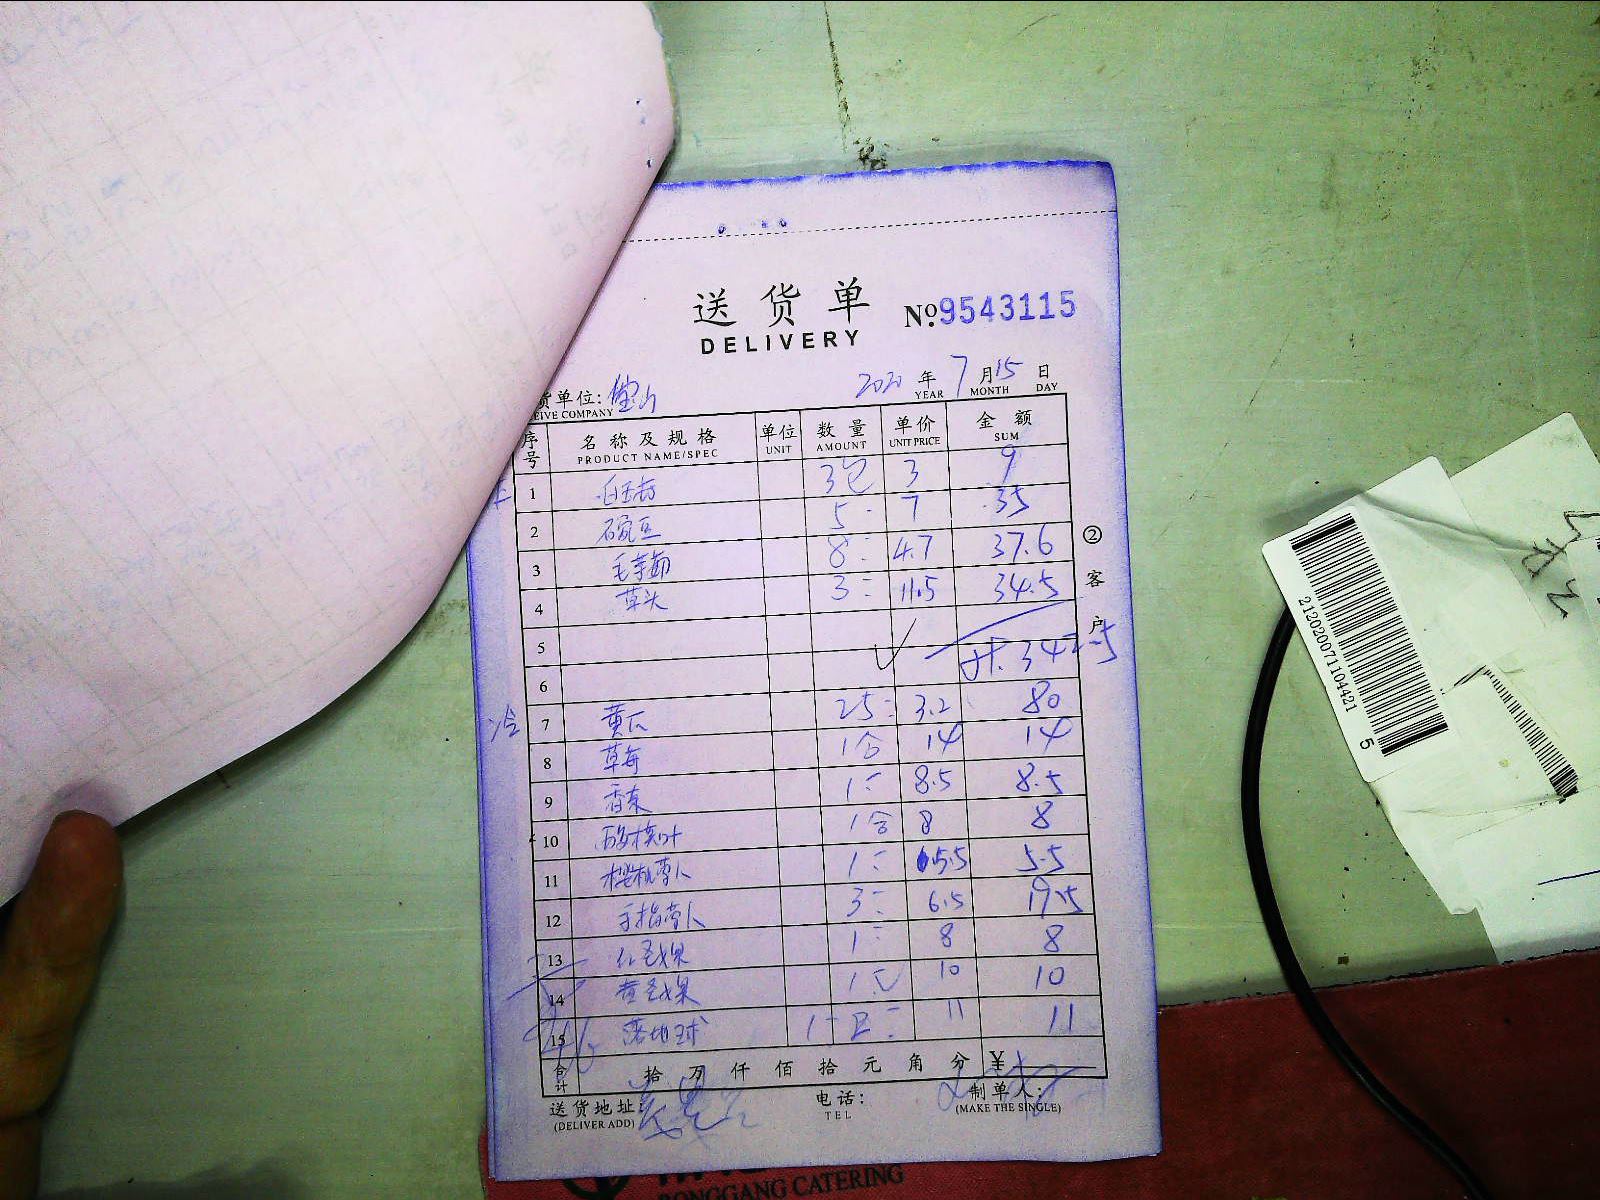 送货单 №9543115
DELIVERY
货单位: 宝山 2020 年 7 月 15 日
EIVE COMPANY YEAR MONTH DAY
序号 名称及规格 单位 数量 单价 金额
PRODUCT NAME/SPEC UNIT AMOUNT UNIT PRICE SUM
1 白玉菇 3包 3 9
2 碗豆 5 7 35
3 毛芋艿 8 4.7 37.6
4 草头 3 11.5 34.5
5
6
7 黄瓜 25 3.2 80
冷
8 草莓 1合 14 14
9 香菜 1 8.5 8.5
10 1合 8 8
11 樱桃萝卜 1 5.5 5.5
12 手指萝卜 3 6.5 19.5
13 红圣女果 1 8 8
14 黄圣女果 1 10 10
15 11 11
合计 拾 万 仟 佰 拾 元 角 分 ¥
送货地址: 电话: 制单人:
(DELIVER ADD) TEL (MAKE THE SINGLE)
②客户
2120200711044215
RONGGANG CATERING